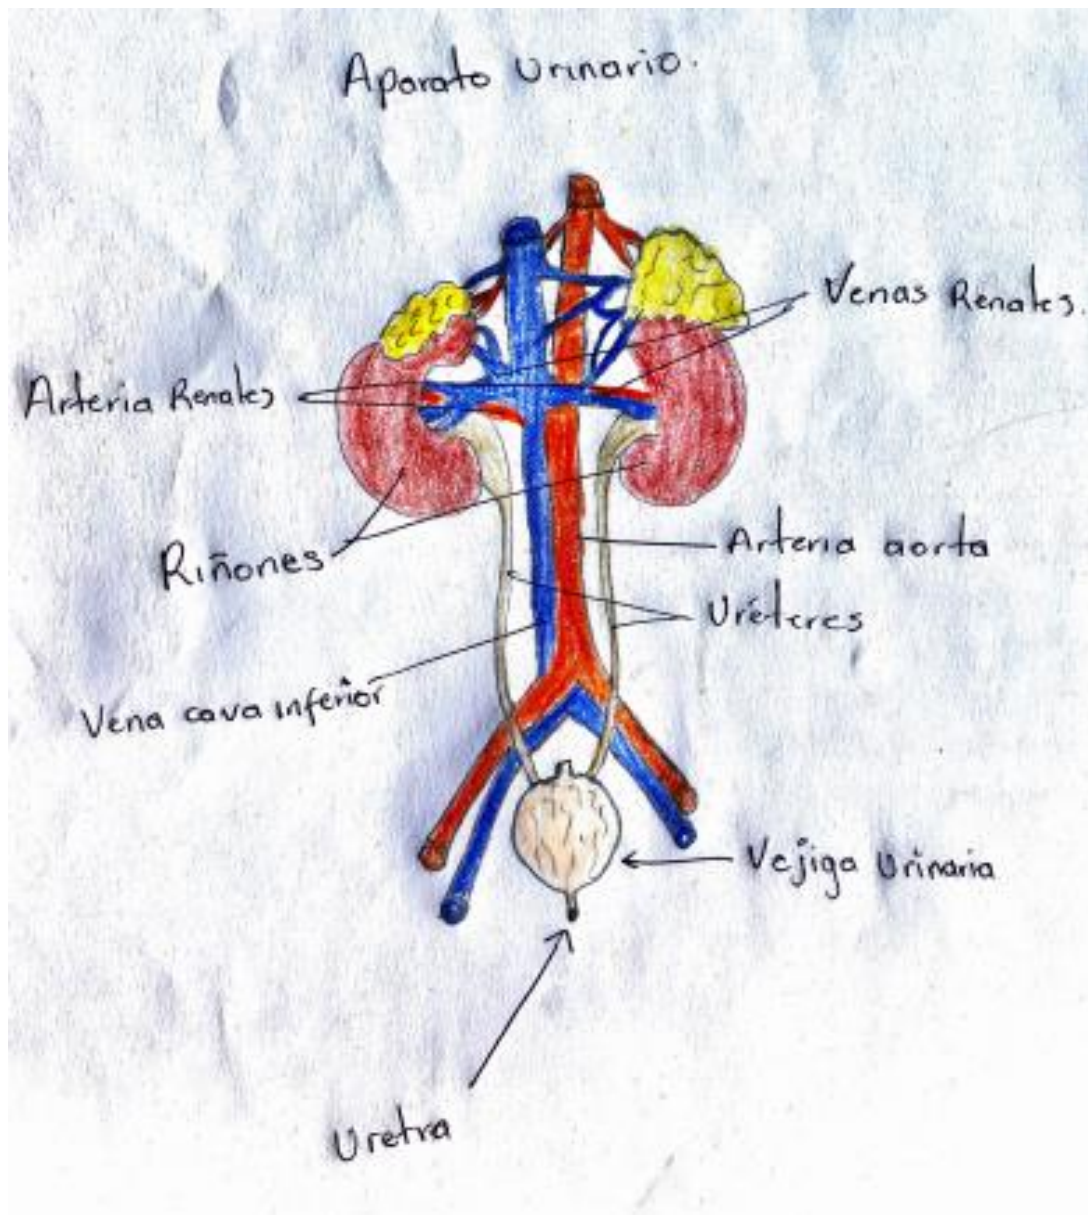 Aparato Urinario.
Venas Renales.
Arteria Renales
Arteria aorta
Riñones
Uréteres
Vena cava inferior
Vejiga Urinaria
Uretra